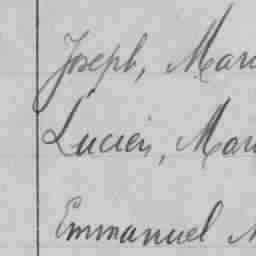 Joseph, Mar
Lucien, Mar
Emmanuel